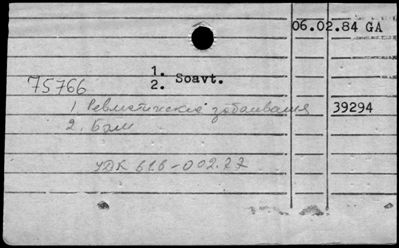 06.02.84 GA
1. Soavt.
2.
75766
1 39294
2. Бол
УДК 616-002.77